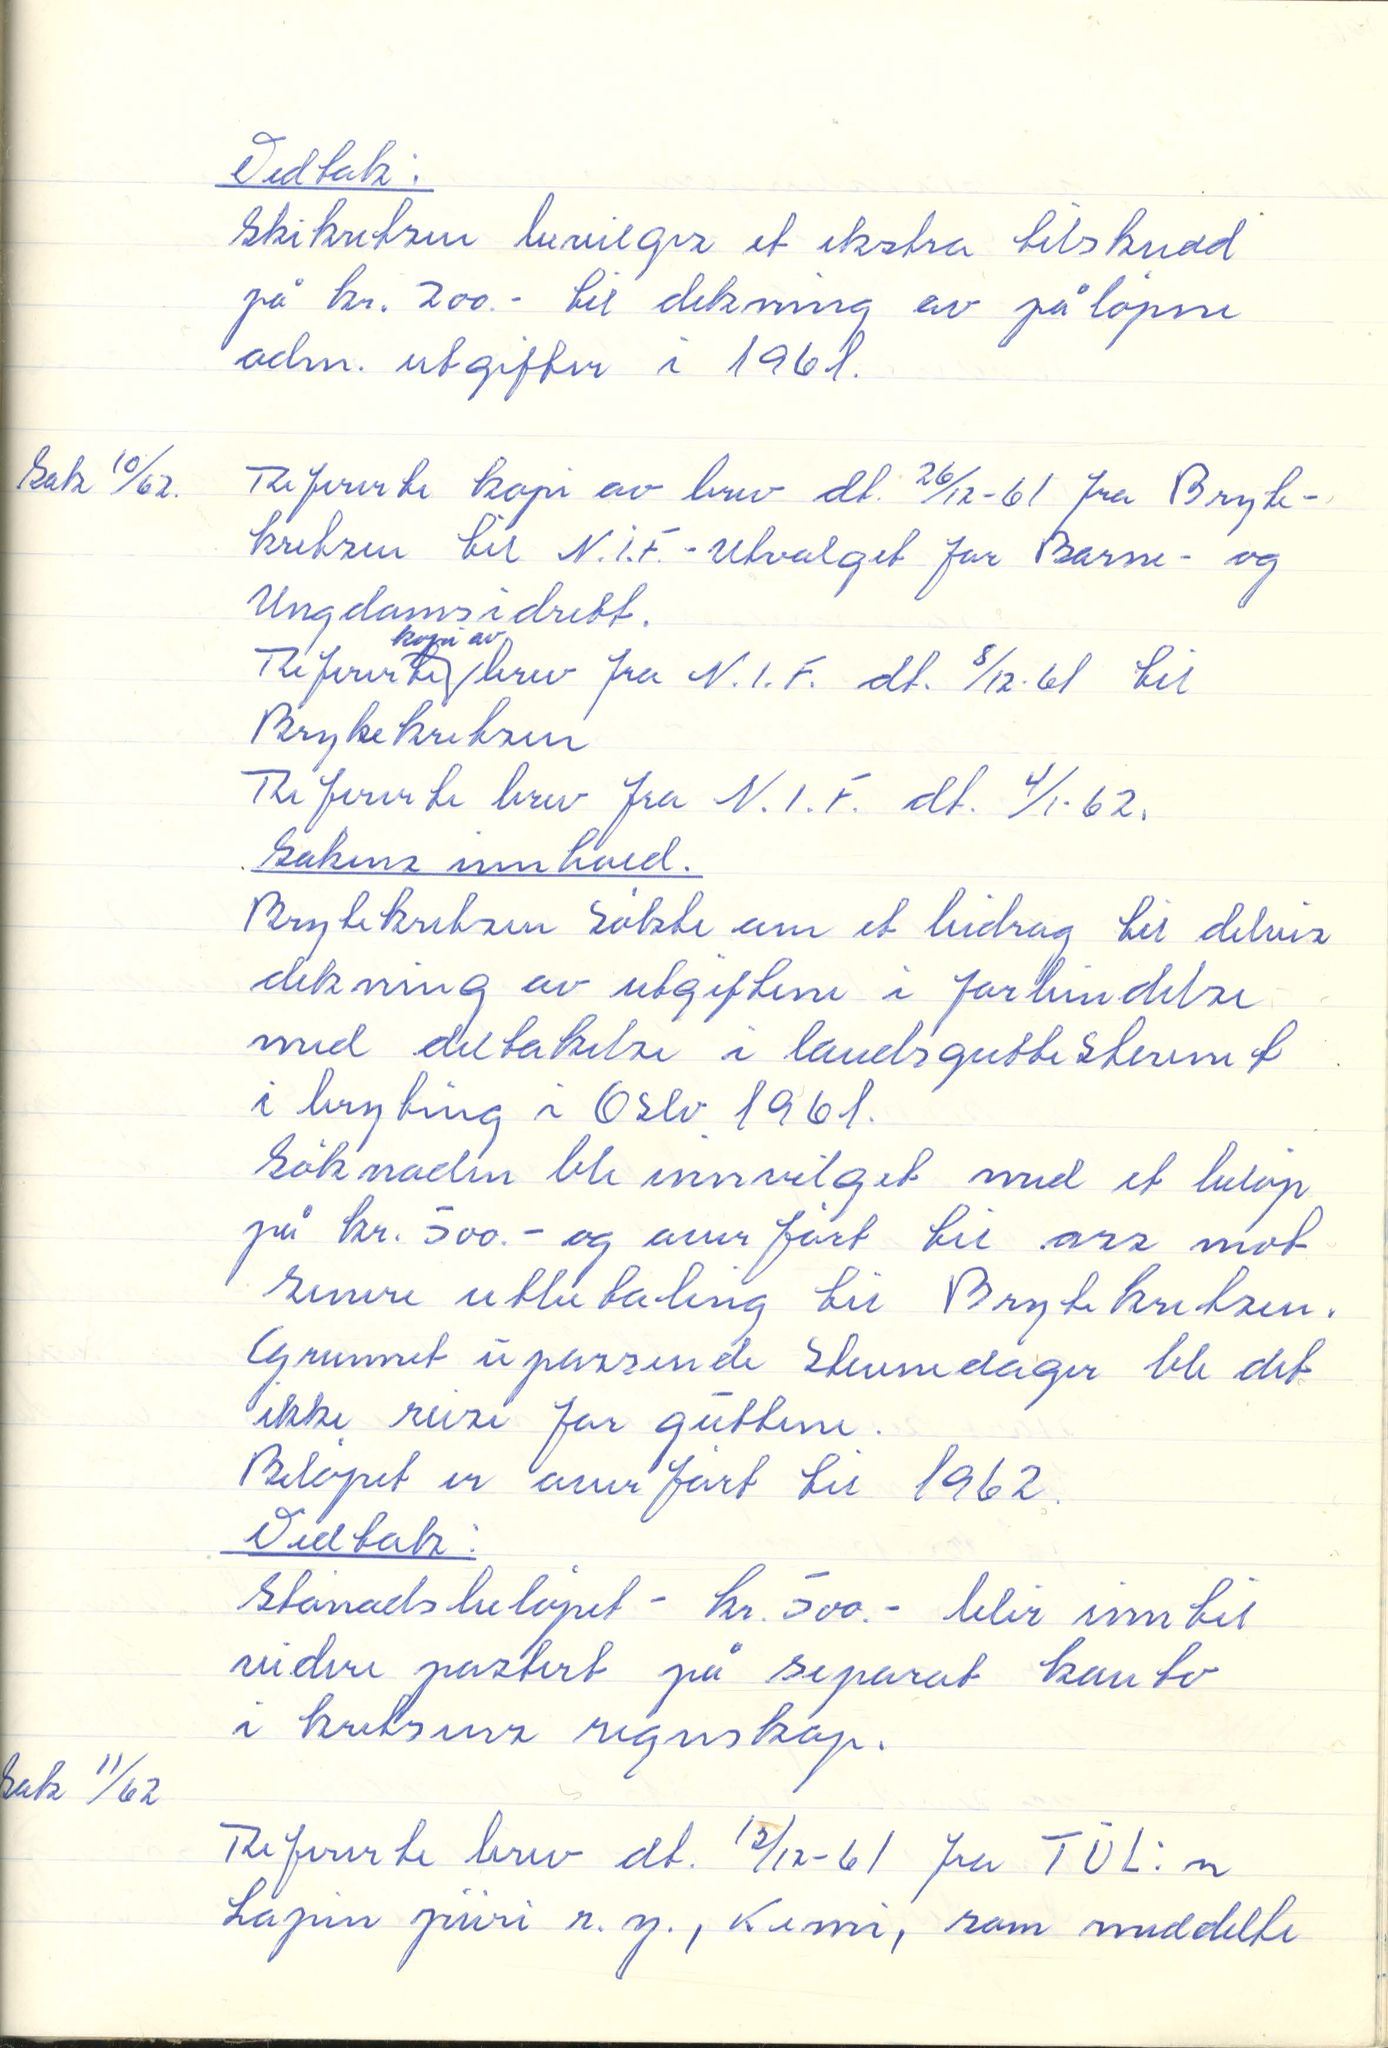 Vedtak:
Skikretsen bevilger et ekstra tilskudd
på kr. 200.- til dekning av påløpne
adm. utgifter i 1961.
Sak 10/62. Refererte kopi av brev dt. 26/12-61 fra Bryte-
kretsen til N.I.F.-Utvalget for Barne- og
Ungdomsidrett.
kopi av
Refererte brev fra N.I.F. dt. 8/12-61 til
Brytekretsen
Refererte brev fra N.I.F. dt. 4/1-62.
Sakens innhold.
Brytekretsen søkte om et bidrag til delvis
dekning av utgiftene i forbindelse
med deltakelse i landsguttestevnet
i bryting i Oslo 1961.
Søknaden ble innvilget med et beløp
på kr. 500.- og overført til oss mot
senere utbetaling til Brytekretsen.
Grunnet upassende stevnedager ble det
ikke reise for guttene.
Beløpet er overført til 1962.
Vedtak:
Stønadsbeløpet - kr. 500.- blir inntil
videre postert på separat konto
i kretsens regnskap.
Sak 11/62
Refererte brev dt. 12/12-61 fra TUL:n
Lapin piiri r.y., Kemi, som meddelte